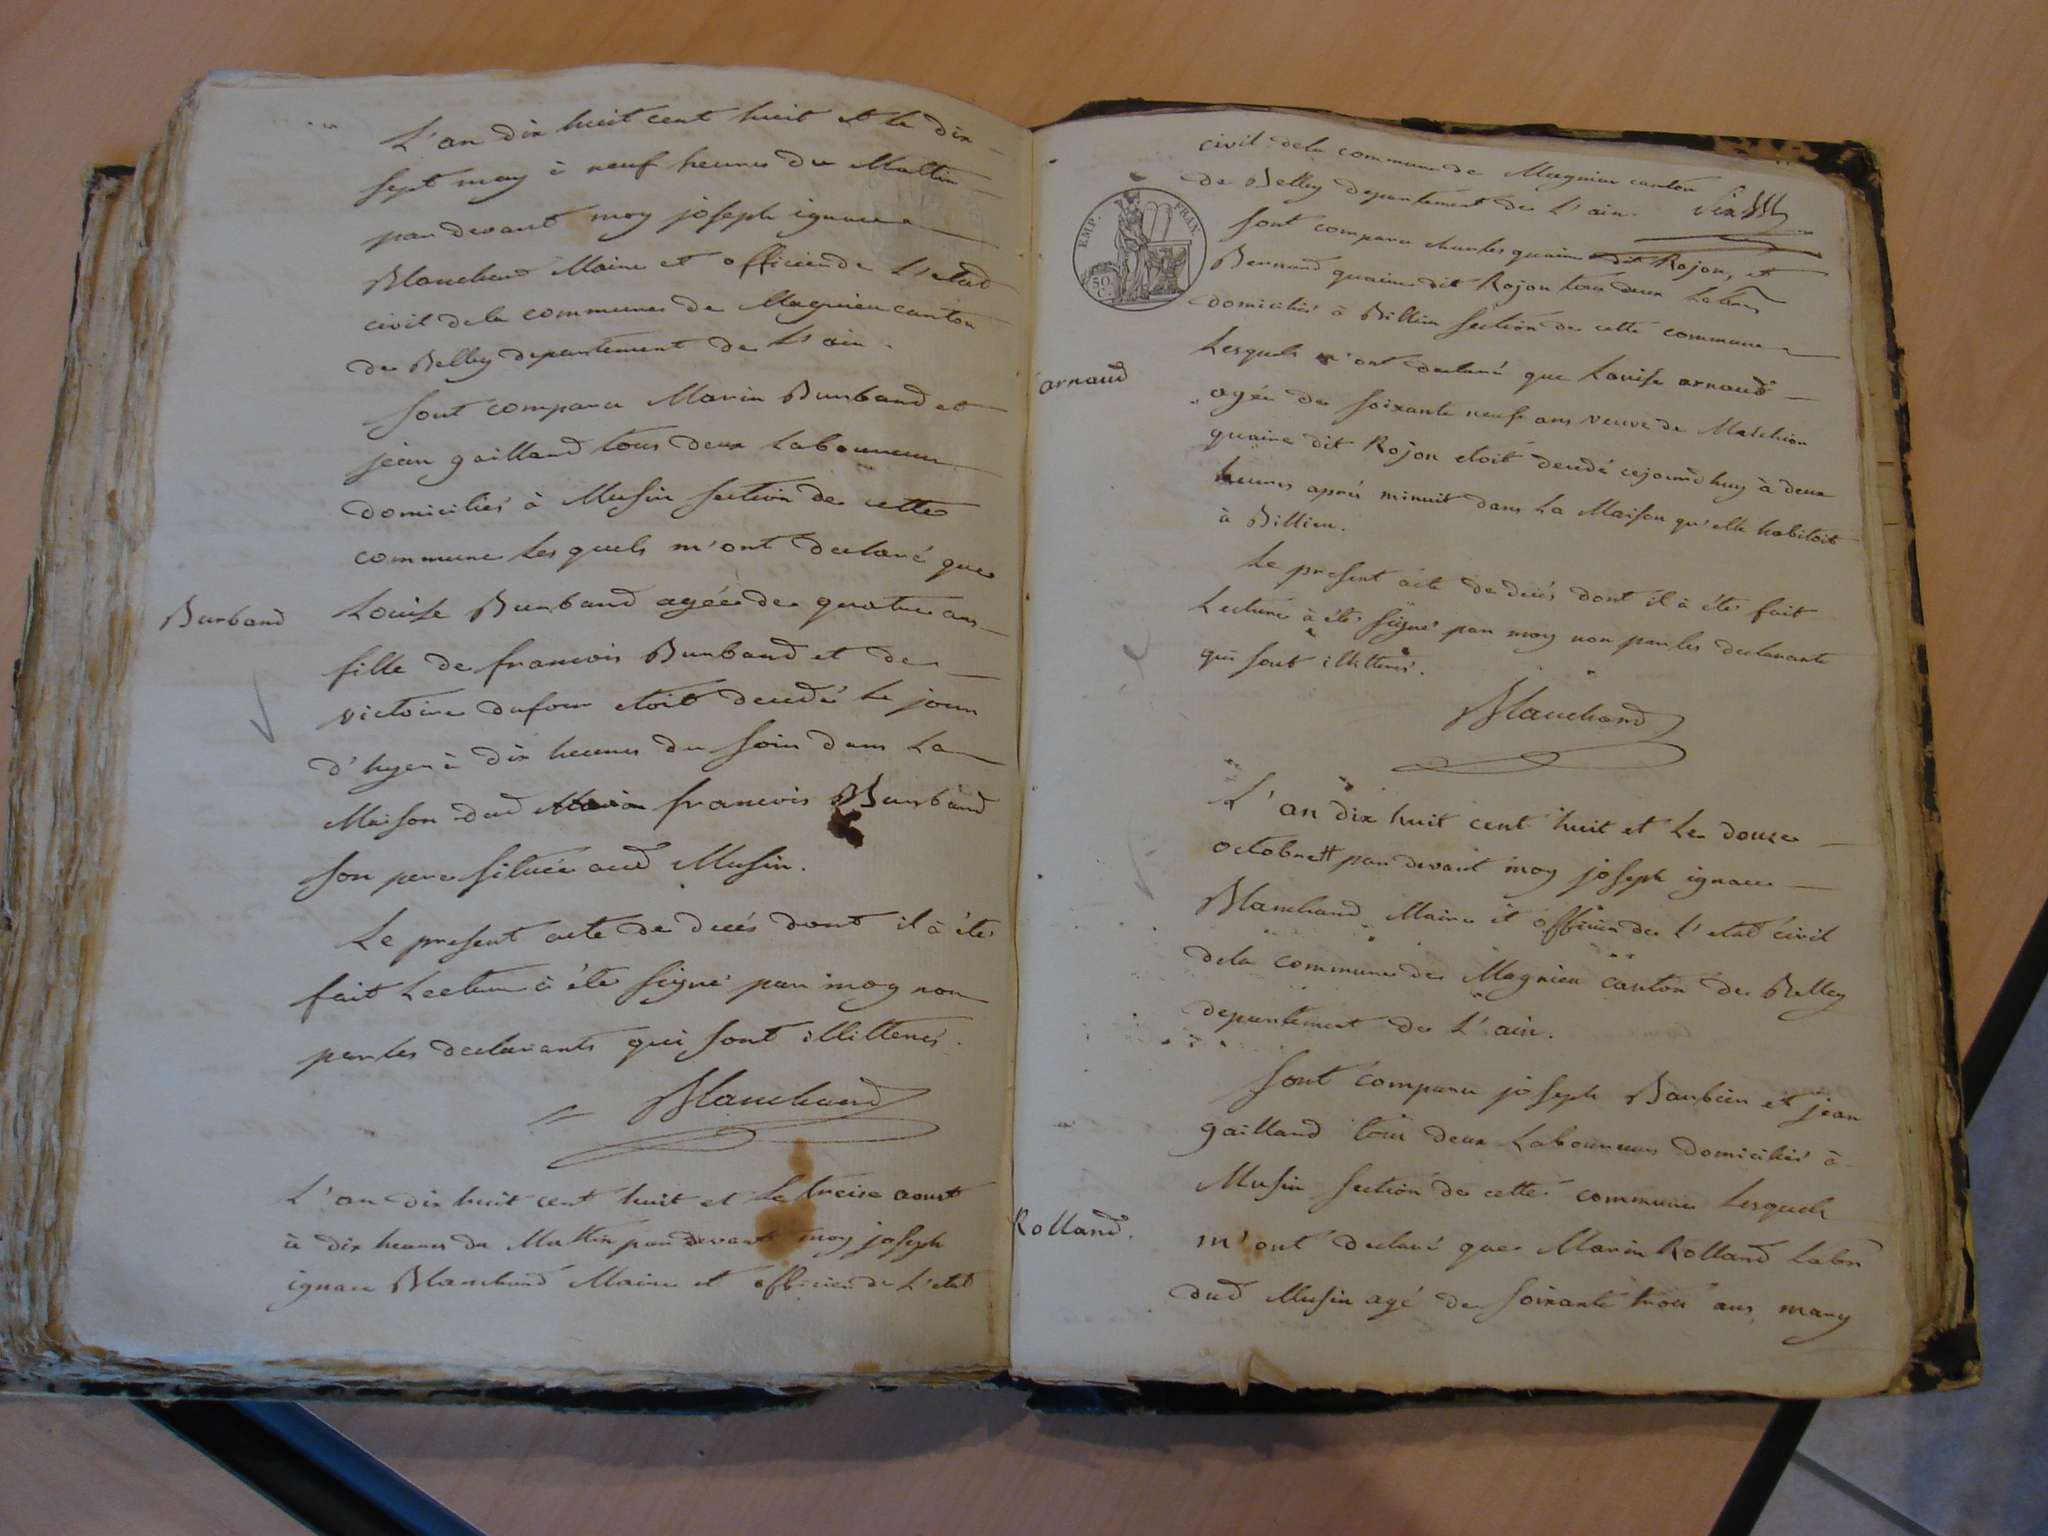 L'an dix huit cent huit et le dix
sept may à neuf heures du Mattin
par devant moy joseph ignace
Blanchard Maire et officier de L'etat
civil dela commune de Magnieu canton
de Belley departement de L'ain.
Sont comparu Marin Burband et
jean gaillard tous deux Laboureur
domiciliés à Musin section de cette
commune Lesquels m'ont declaré que
Burband
Louise Burband agée de quatre ans
fille de francois Burband et de
victoire dufour etoit decedé Le jour
d'hyer à dix heures du soir dans La
Maison dud francois Burband
son pere située aud Musin.
Le present acte de decés dont il à étés
fait Lecture à été signé par moy non
par les declarants qui sont illitterés.
Blanchard
L'an dix huit cent huit et Le treise aoust
à dix heures du Mattin par devant moy joseph
ignace Blanchard Maire et officier de L'etat
civil dela commune de Magnieu canton
de Belley departement de L'ain.
EMP. FRAN.
50 C.
Sont comparu charles quaine dit Rojon, et
Bernard quaine dit Rojon tous deux Labrs
domiciliés à Billieu section de cette commune
Lesquels m'ont declaré que Louise arnaud
arnaud
agée de soixante neuf ans veuve de Malchion
quaine dit Rojon etoit decedé cejourd'huy à deux
heures aprés minuit dans La Maison qu'elle habitoit
à Billieu.
Le present acte de decés dont il à étés fait
Lecture à étés signés par moy non par les declarants
qui sont illitterés.
Blanchard
L'an dix huit cent huit et Le douse
octobre par devant moy joseph ignace
Blanchard Maire et officier de L'etat civil
dela commune de Magnieu canton de Belley
departement de L'ain.
Sont comparu joseph Barbier et jean
gaillard tous deux Laboureurs domiciliés à
Musin section de cette commune Lesquels
Rolland.
m'ont declaré que Marin Rolland Labr
dud Musin agé de soixante trois ans, mary